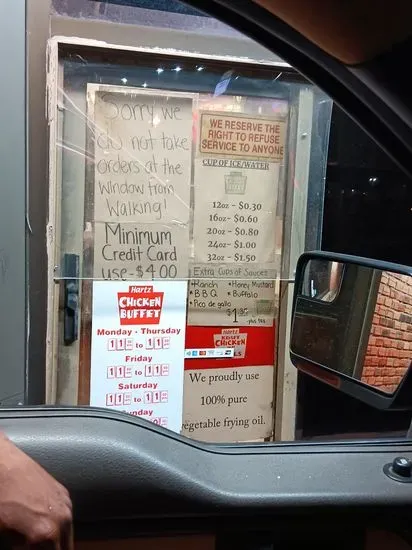 Sorry we
do not take
orders at the
window from
Walking!
Minimum
Credit Card
use - $4.00
WE RESERVE THE
RIGHT TO REFUSE
SERVICE TO ANYONE
CUP OF ICE/WATER
12oz - $0.30
16oz - $0.60
20oz - $0.80
24oz - $1.00
32oz - $1.50
Extra Cups of Sauces
•Ranch •Honey Mustard
•B.B.Q. •Buffalo
•Pico de gallo
plus tax
Hartz
CHICKEN
BUFFET
Monday - Thursday
11 to 11
Friday
11 to 11
Saturday
11 to 11
unday
Hartz
CHICKEN
We proudly use
100% pure
vegetable frying oil.